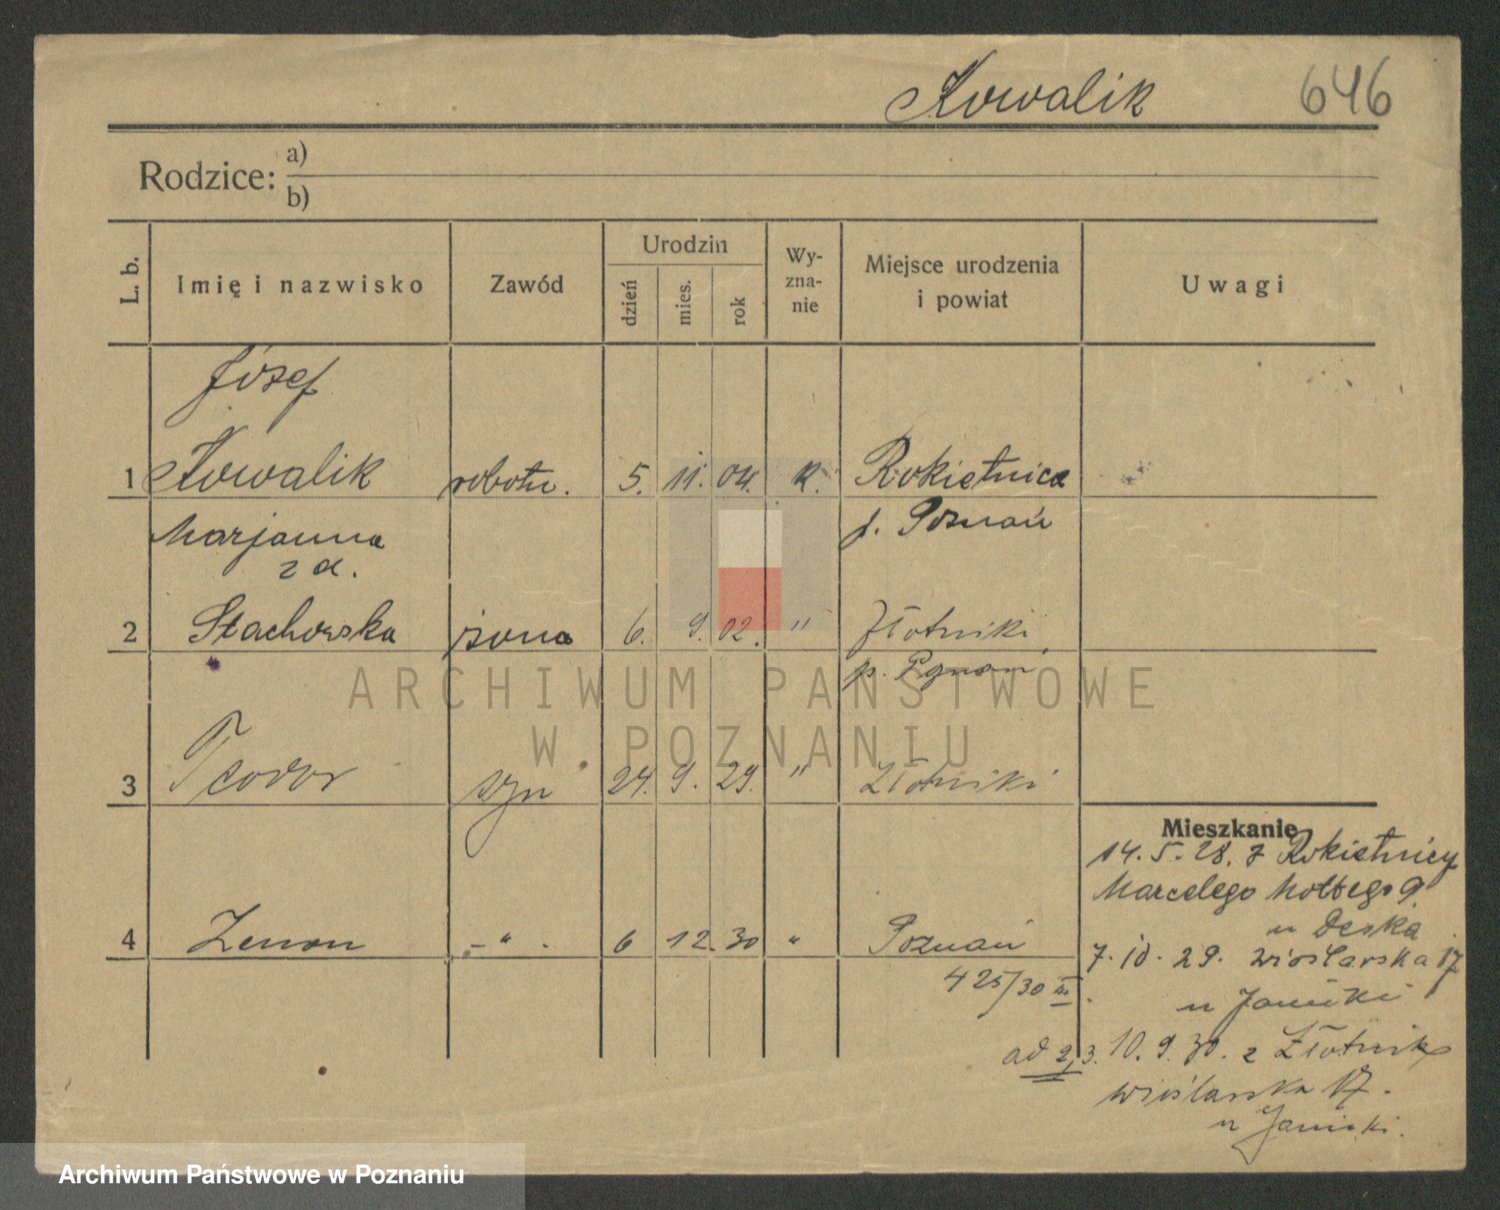 Kowalik 646
Rodzice: a)
b)
L. b. Imię i nazwisko Zawód Urodzin dzień mies. rok Wy-zna-nie Miejsce urodzenia i powiat Uwagi
Józef
1 Kowalik robotn. 5. 11. 04. k. Rokietnica
Marjanna p. Poznań
z d.
2 Stachowska żona 6. 9. 02. " Złotniki
p. Poznań
ARCHIWUM PAŃSTWOWE
W POZNANIU
3 Teodor syn 24. 9. 29. " Złotniki
Mieszkanie
14. 5. 28. z Rokietnicy
Marcelego Mottego 9.
4 Zenon - " - 6 12. 30 " Poznań
u Deska
425/30 III.
7. 10. 29. Wioślarska 17
u Janicki
ad 2,3. 10. 9. 30. z Złotnik
Wioślarska 17.
u Janicki.
Archiwum Państwowe w Poznaniu